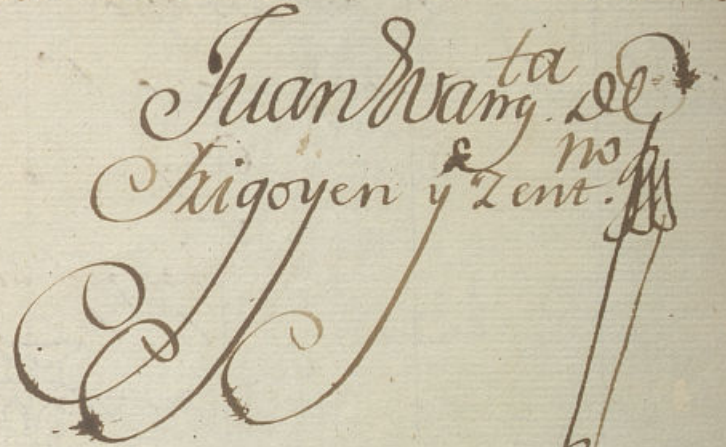 Juan Evang.ta De
Irigoyen y Zent.no